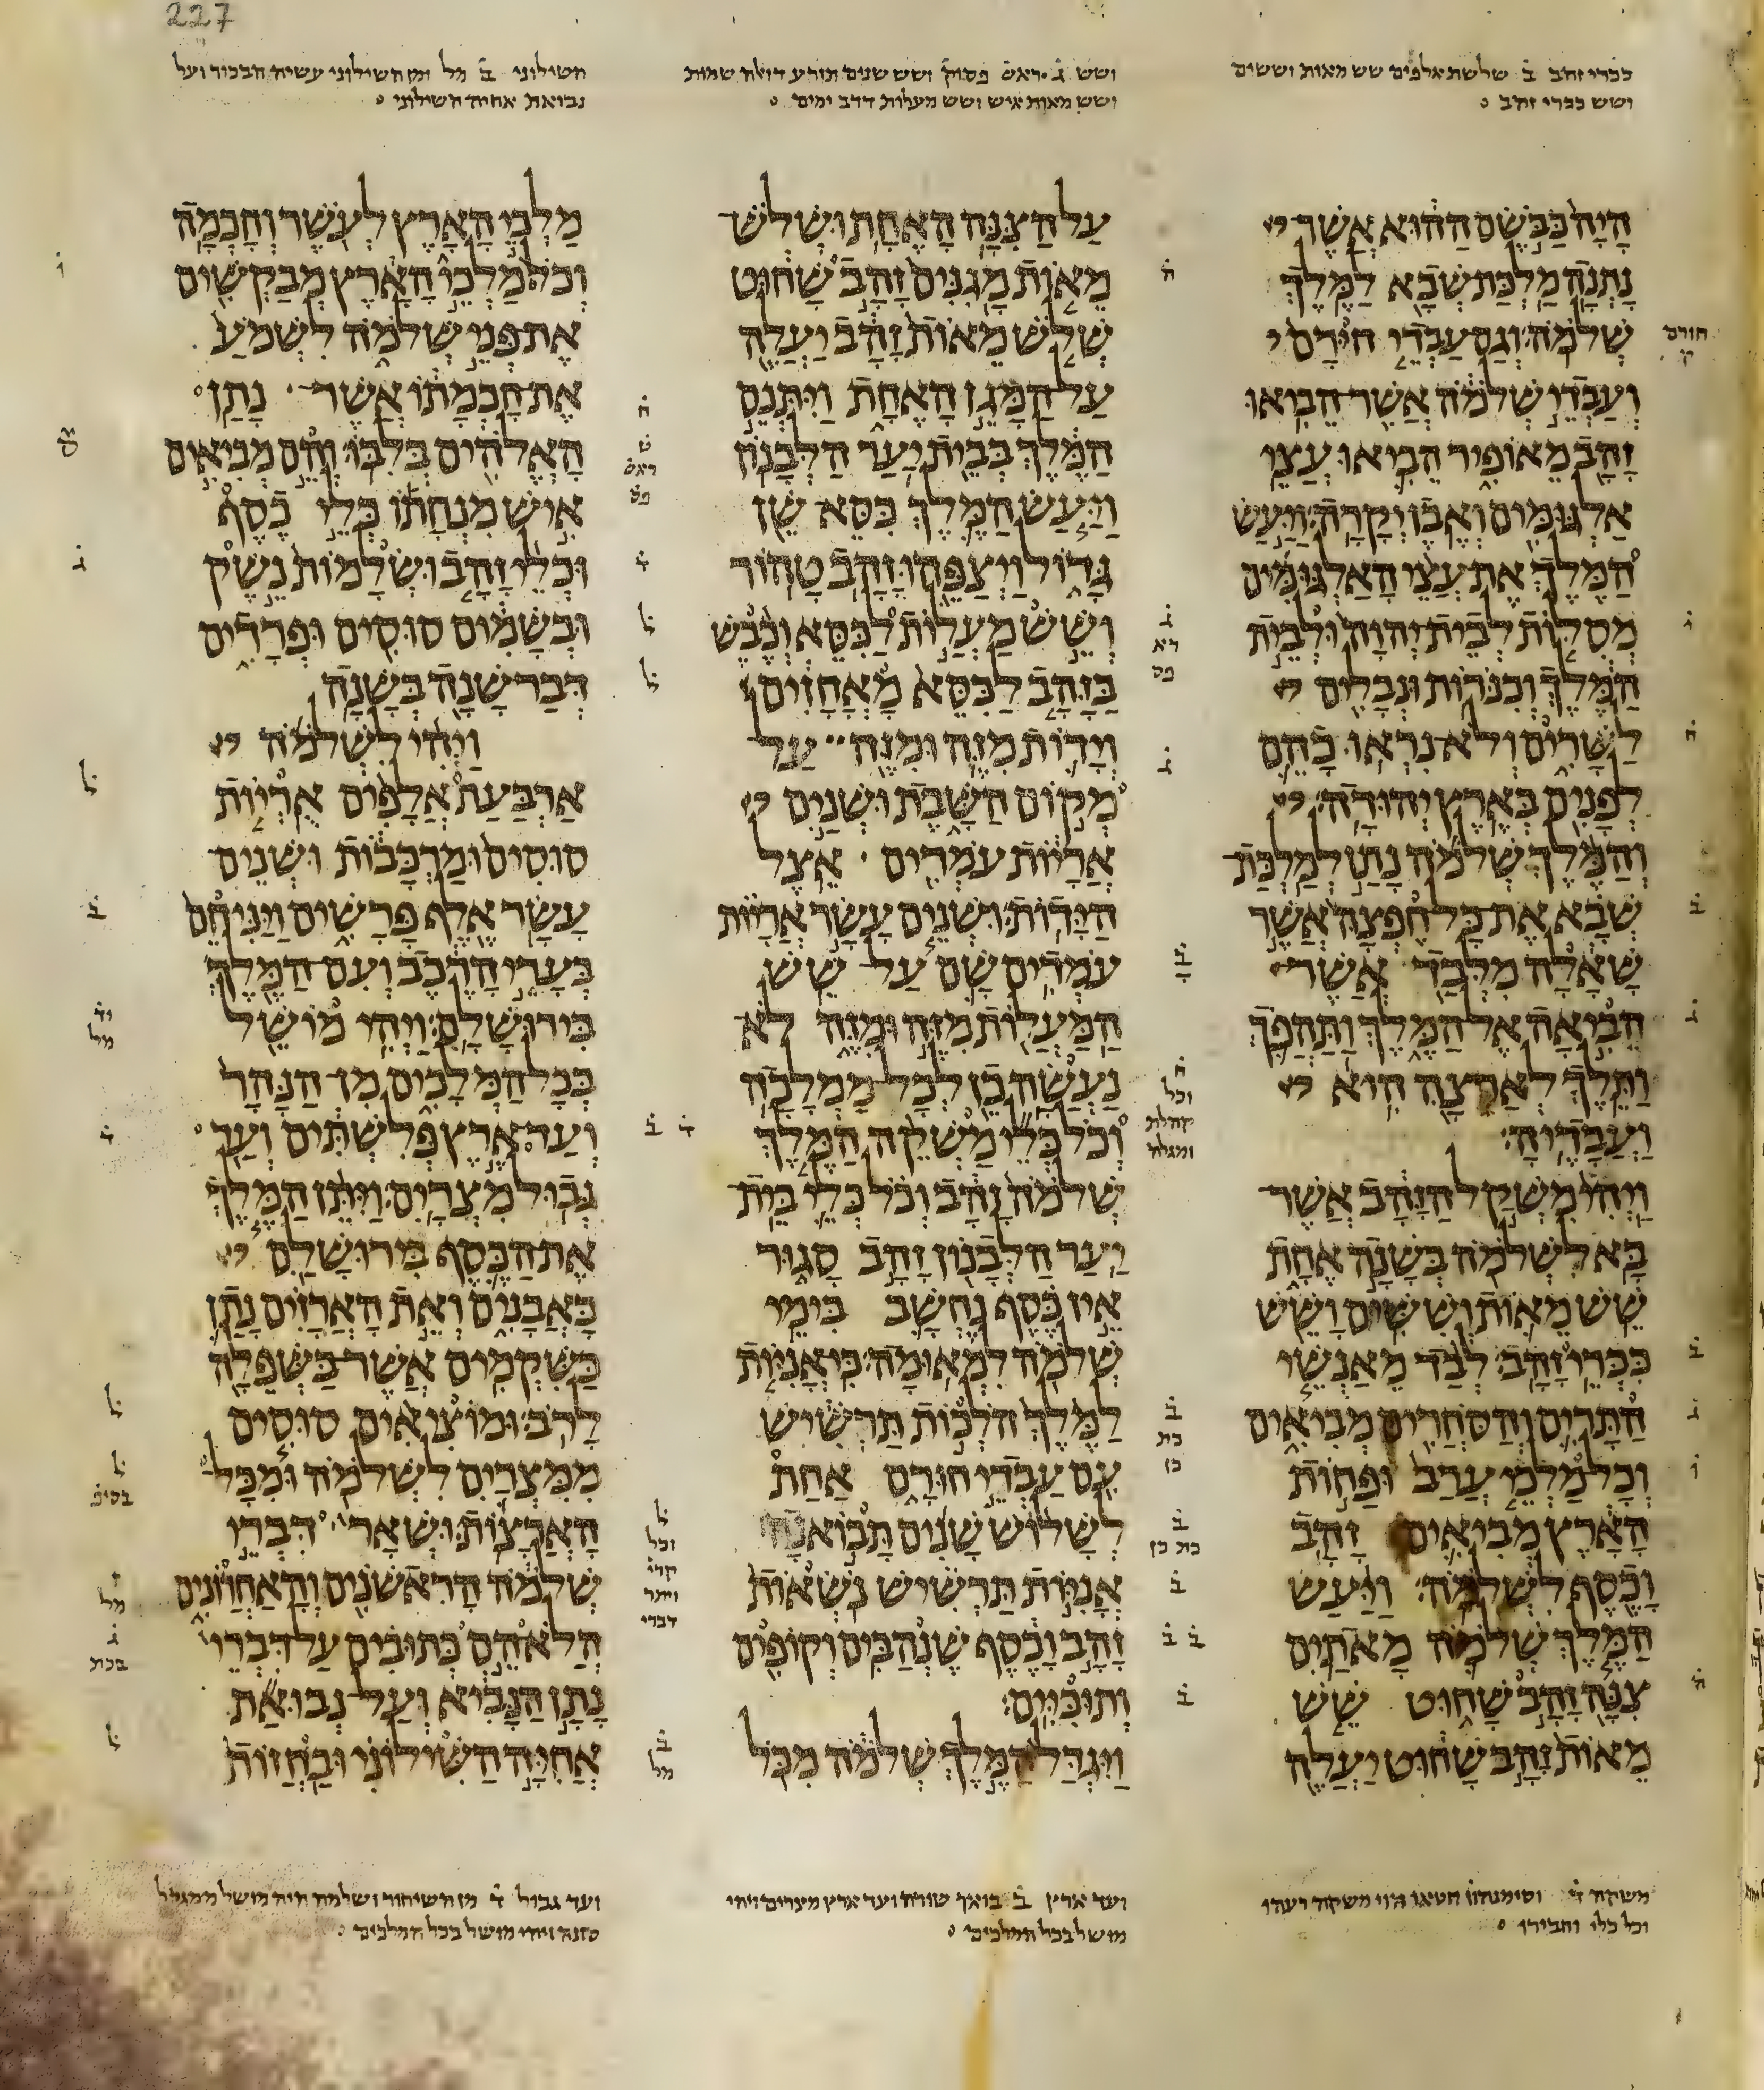 227
ככרי זהב ב שלשת אלפים שש מאות וששים
ושש ככרי זהב
ושש ג ראש פסוק ושש שנים תזרע דואלה שמות
ושש מאות איש ושש מעלות דדב ימים
השילוני ב מל ומן השילוני עשיה הבכור ועל
נבואת אחיה השילוני
היה כבשם ההוא אשר
נתנה מלכת שבא למלך
שלמה וגם עבדי חירם
ועבדי שלמה אשר הביאו
זהב מאופיר הביאו עצי
אלגומים ואבן יקרה ויעש
המלך את עצי האלגומים
מסלות לבית יהוה ולבית
המלך וכנרות ונבלים
לשרים ולא נראו כהם
לפנים בארץ יהודה
והמלך שלמה נתן למלכת
שבא את כל חפצה אשר
שאלה מלבד אשר
הביאה אל המלך ותהפך
ותלך לארצה היא
ועבדיה
ויהי משקל הזהב אשר
בא לשלמה בשנה אחת
שש מאות וששים ושש
ככרי זהב לבד מאנשי
התרים והסחרים מביאים
וכל מלכי ערב ופחות
הארץ מביאים זהב
וכסף לשלמה ויעש
המלך שלמה מאתים
צנה זהב שחוט שש
מאות זהב שחוט יעלה
על הצנה האחת ושלש
מאות מגנים זהב שחוט
שלש מאות זהב יעלה
על המגן האחת ויתנם
המלך בבית יער הלבנון
ויעש המלך כסא שן
גדול ויצפהו זהב טהור
ושש מעלות לכסא וכבש
בזהב לכסא מאחזים
וידות מזה ומזה על
מקום השבת ושנים
אריות עמדים אצל
הידות ושנים עשר אריות
עמדים שם על שש
המעלות מזה ומזה לא
נעשה כן לכל ממלכה
וכל כלי משקה המלך
שלמה זהב וכל כלי בית
יער הלבנון זהב סגור
אין כסף נחשב בימי
שלמה למאומה כי אניות
למלך הלכות תרשיש
עם עבדי חורם אחת
לשלוש שנים תבואנה
אניות תרשיש נשאות
זהב וכסף שנהבים וקופים
ותוכיים
ויגדל המלך שלמה מכל
מלכי הארץ לעשר וחכמה
וכל מלכי הארץ מבקשים
את פני שלמה לשמע
את חכמתו אשר נתן
האלהים בלבו והם מביאים
איש מנחתו כלי כסף
וכלי זהב ושלמות נשק
ובשמים סוסים ופרדים
דבר שנה בשנה
ויהי לשלמה
ארבעת אלפים אריות
סוסים ומרכבות ושנים
עשר אלף פרשים ויניחם
בערי הרכב ועם המלך
בירושלם ויהי מושל
בכל המלכים מן הנהר
ועד ארץ פלשתים ועד
גבול מצרים ויתן המלך
את הכסף בירושלם
כאבנים ואת הארזים נתן
כשקמים אשר בשפלה
לרב ומוציאים סוסים
ממצרים לשלמה ומכל
הארצות ושאר דברי
שלמה הראשנים והאחרונים
הלא הם כתובים על דברי
נתן הנביא ועל נבואת
אחיה השילוני ובחזות
משקה ד וסימנהון חטאו הוי משקה רעהו
וכל כלי וחבירו
ועד ארץ ב בואך שורה ועד ארץ מצרים ויהי
מושל בכל המלכים
ועד גבול ד מן השיחור ושלמה היה מושל ממגדל
סונה ויהי מושל בכל המלכים